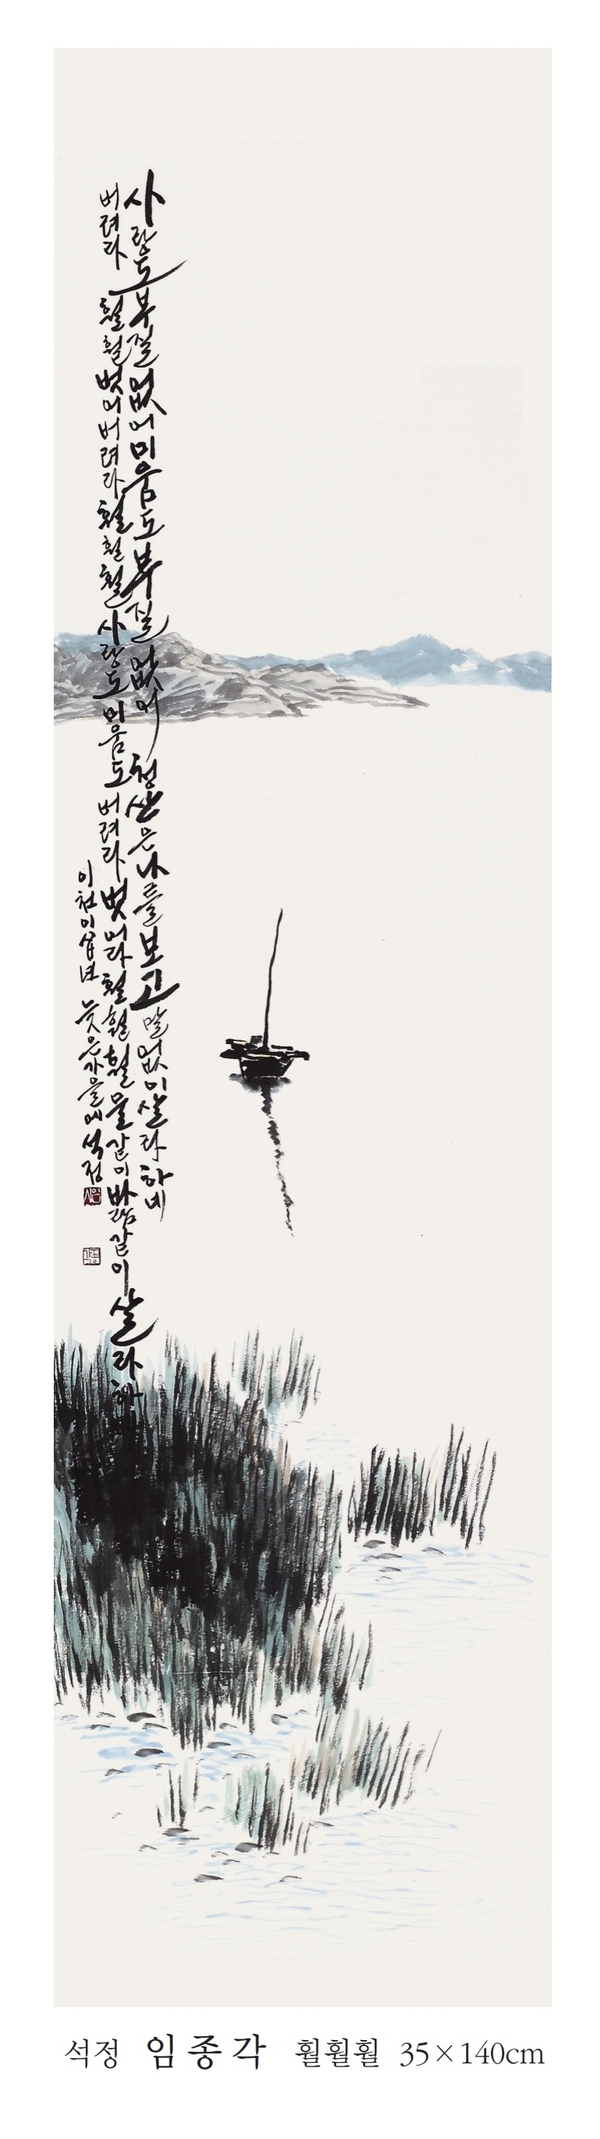 사랑도 부질없어 미움도 부질없어 청산은 나를 보고 말없이 살라하네
버려라 훨훨 벗어버려라 훨훨훨 사랑도 미움도 버려라 벗어라 훨훨훨 물같이 바람같이 살라하
이천이십년 늦은가을에 석정
석정 임종각 휠휠휠 35×140cm